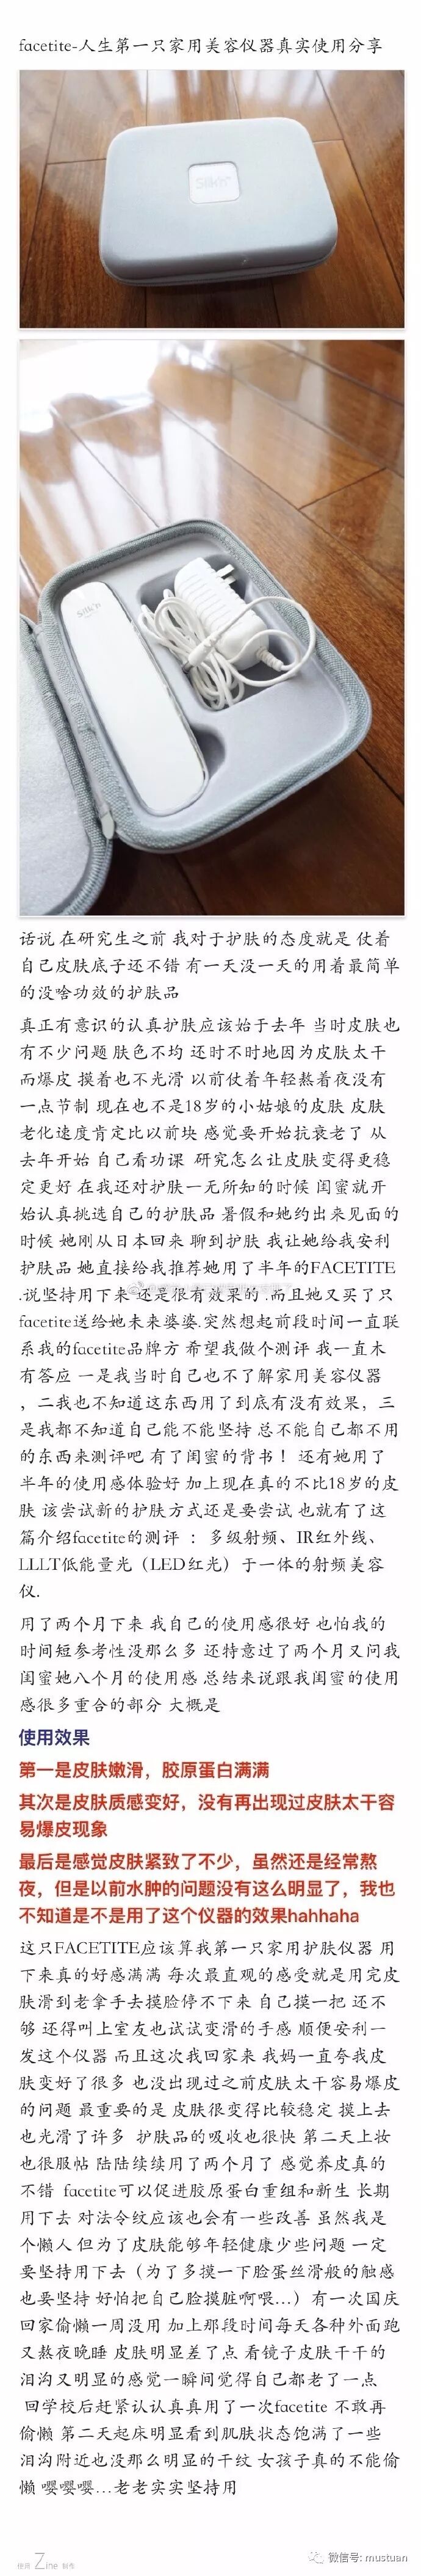 facetite-人生第一只家用美容仪器真实使用分享
Silk'n
Silk'n
话说 在研究生之前 我对于护肤的态度就是 仗着
自己皮肤底子还不错 有一天没一天的用着最简单
的没啥功效的护肤品
真正有意识的认真护肤应该始于去年 当时皮肤也
有不少问题 肤色不均 还时不时地因为皮肤太干
而爆皮 摸着也不光滑 以前仗着年轻熬着夜没有
一点节制 现在也不是18岁的小姑娘的皮肤 皮肤
老化速度肯定比以前块 感觉要开始抗衰老了 从
去年开始 自己看功课 研究怎么让皮肤变得更稳
定更好 在我还对护肤一无所知的时候 闺蜜就开
始认真挑选自己的护肤品 暑假和她约出来见面的
时候 她刚从日本回来 聊到护肤 我让她给我安利
护肤品 她直接给我推荐她用了半年的FACETITE
.说坚持用下来 还是很有效果的 而且她又买了只
facetite送给她未来婆婆.突然想起前段时间一直联
系我的facetite品牌方 希望我做个测评 我一直木
有答应 一是我当时自己也不了解家用美容仪器
，二我也不知道这东西用了到底有没有效果，三
是我都不知道自己能不能坚持 总不能自己都不用
的东西来测评吧 有了闺蜜的背书！ 还有她用了
半年的使用感体验好 加上现在真的不比18岁的皮
肤 该尝试新的护肤方式还是要尝试 也就有了这
篇介绍facetite的测评 ： 多级射频、IR红外线、
LLLT低能量光（LED红光）于一体的射频美容
仪.
用了两个月下来 我自己的使用感很好 也怕我的
时间短参考性没那么多 还特意过了两个月又问我
闺蜜她八个月的使用感 总结来说跟我闺蜜的使用
感很多重合的部分 大概是
使用效果
第一是皮肤嫩滑，胶原蛋白满满
其次是皮肤质感变好，没有再出现过皮肤太干容
易爆皮现象
最后是感觉皮肤紧致了不少，虽然还是经常熬
夜，但是以前水肿的问题没有这么明显了，我也
不知道是不是用了这个仪器的效果hahhaha
这只FACETITE应该算我第一只家用护肤仪器 用
下来真的好感满满 每次最直观的感受就是用完皮
肤滑到老拿手去摸脸停不下来 自己摸一把 还不
够 还得叫上室友也试试变滑的手感 顺便安利一
发这个仪器 而且这次我回家来 我妈一直夸我皮
肤变好了很多 也没出现过之前皮肤太干容易爆皮
的问题 最重要的是 皮肤很变得比较稳定 摸上去
也光滑了许多 护肤品的吸收也很快 第二天上妆
也很服帖 陆陆续续用了两个月了 感觉养皮真的
不错 facetite可以促进胶原蛋白重组和新生 长期
用下去 对法令纹应该也会有一些改善 虽然我是
个懒人 但为了皮肤能够年轻健康少些问题 一定
要坚持用下去（为了多摸一下脸蛋丝滑般的触感
也要坚持 好怕把自己脸摸脏啊喂...）有一次国庆
回家偷懒一周没用 加上那段时间每天各种外面跑
又熬夜晚睡 皮肤明显差了点 看镜子皮肤干干的
泪沟又明显的感觉一瞬间觉得自己都老了一点
回学校后赶紧认认真真用了一次facetite 不敢再
偷懒 第二天起床明显看到肌肤状态饱满了一些
泪沟附近也没那么明显的干纹 女孩子真的不能偷
懒 嘤嘤嘤...老老实实坚持用
使用 Zine 制作
微信号: mustuan